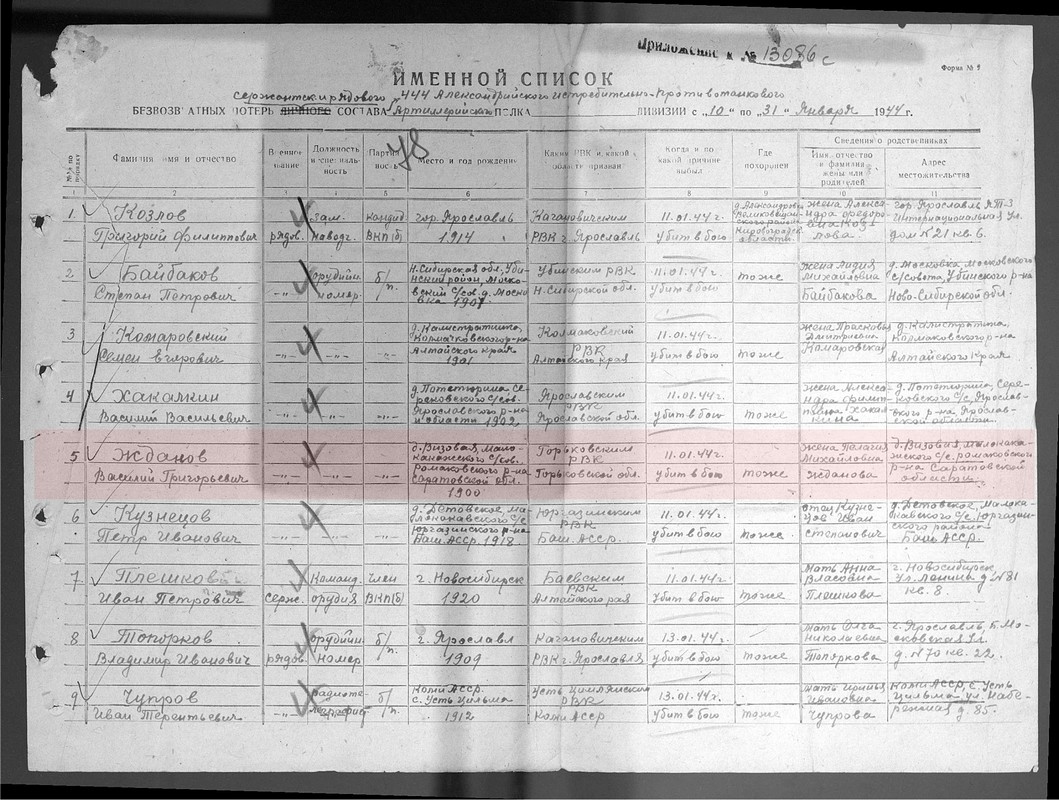 Приложение к № 13086 с
Форма № 2
ИМЕННОЙ СПИСОК
сержантск. и рядового 444 Александрийского Истребительно-Противотанкового
БЕЗВОЗВРАТНЫХ ПОТЕРЬ ЛИЧНОГО СОСТАВА Артиллерийского ПОЛКА ДИВИЗИИ с „10“ по „31“ Января 1944 г.
48
№№ по порядку
Фамилия имя и отчество
Военное звание
Должность и специальность
Партийность
Место и год рождения
Каким РВК и какой области призван
Когда и по какой причине выбыл
Где похоронен
Сведения о родственниках
Имя отчество и фамилия жены или родителей
Адрес местожительства
1 2 3 4 5 6 7 8 9 10 11
1 Козлов Григорий Филиппович рядов. зам. наводч. кандид ВКП(б) гор. Ярославль 1914 Кагановичским РВК г. Ярославль 11.01.44г. убит в бою д. Александровка Кировоградской области жена Александра Федоровна Козлова. гор. Ярославль ЯТ-3 Интернациональная ул. дом к 21 кв. 6.
2 Байбаков Степан Петрович -„- орудийн номер б/п. Н. Сибирская обл, Убинский район, Московский с/сов. д. Московка 1907 Убинским РВК Н. Сибирской обл. 11.01.44г. убит в бою тоже жена Лидия Михайловна Байбакова д. Московка, Московского с/совета, Убинского р-на Ново-Сибирской обл.
3 Комаровский Семен Егорович -„- -„- -„- д. Калистратиха, Калмаковского р-на Алтайского края 1901 Колмаковский РВК Алтайского края 11.01.44г. убит в бою тоже жена Прасковья Дмитриевна Комаровская д. Калистратиха, Калмаковского р-на Алтайского края
4 Хакалкин Василий Васильевич -„- -„- -„- Ярославского р-на и области 1902 Ярославским РВК Ярославской обл. 11.01.44г. убит в бою тоже жена Александра д. Потетюрино, Ярославского р-на Ярославской области.
5 Жданов Василий Григорьевич -„- -„- -„- д. Визовая, романовского р-на Саратовской обл. 1900 Горьковским РВК Горьковской обл. 11.01.44г. убит в бою тоже жена Пелагия Михайловна Жданова д. Визовая, романовского р-на Саратовской области.
6 Кузнецов Петр Иванович -„- -„- -„- д. Детовское Юргазинского р-на Баш. АССР. 1918. Юргазинским РВК Баш. АССР. 11.01.44г. убит в бою тоже отец Кузнецов Иван Степанович д. Детовское, Юргазинского района Баш. АССР.
7 Плешков Иван Петрович серж. Команд. орудия член ВКП(б) г. Новосибирск 1920 Баевским РВК Алтайского рая 11.01.44г. убит в бою тоже Мать Анна Власовна Плешкова г. Новосибирск ул. Ленина д №81 кв. 8.
8 Топорков Владимир Иванович рядов. орудийн номер б/п. г. Ярославл 1909 Кагановичским РВК г. Ярославля 13.01.44г. убит в бою тоже Мать Ольга Николаевна Топоркова г. Ярославль, Б. Московская ул. д. №70 кв. 22.
9 Чупров Иван Терентьевич -„- радиотелеграфист б/п. Коми АССР. с. Усть Цильма 1912 Усть Цимлянским РВК Коми АССР 13.01.44г. убит в бою тоже Мать Ирина Ивановна Чупрова Коми АССР, с. Усть Цильма ул. Набережная д. 85.